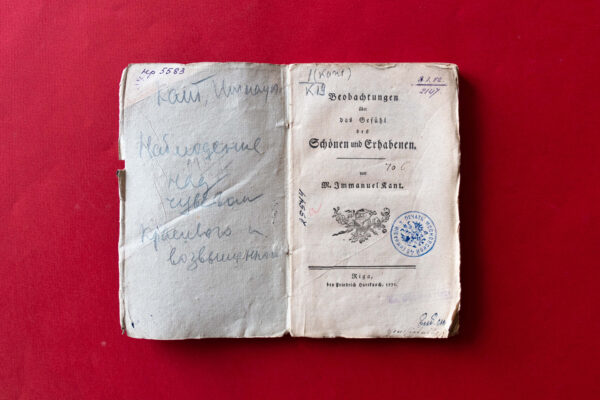 Нр 5583
Кант, Иммануил
Наблюдение
над
чувством
красивого и
возвышенного
1(Кант)
К19
2147
Beobachtungen
über
das Gefühl
des
Schönen und Erhabenen.
von
M. Immanuel Kant.
Riga,
bey Friedrich Hartknoch. 1771.